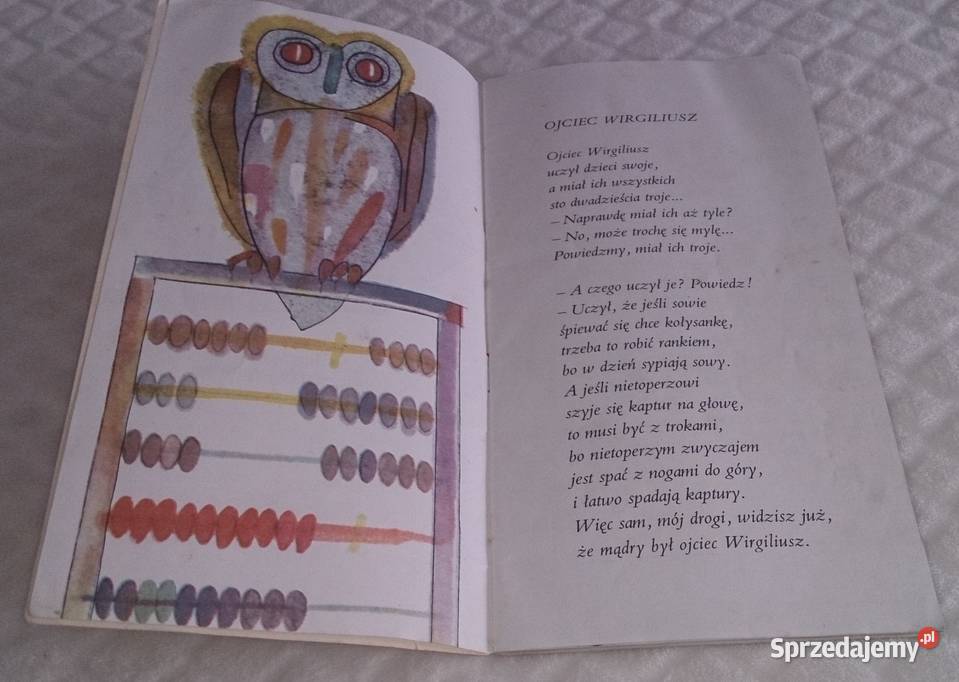 OJCIEC WIRGILIUSZ
Ojciec Wirgiliusz
uczył dzieci swoje,
a miał ich wszystkich
sto dwadzieścia troje...
– Naprawdę miał ich aż tyle?
– No, może trochę się mylę...
Powiedzmy, miał ich troje.
– A czego uczył je? Powiedz!
– Uczył, że jeśli sowie
śpiewać się chce kołysankę,
trzeba to robić rankiem,
bo w dzień sypiają sowy.
A jeśli nietoperzowi
szyje się kaptur na głowę,
to musi być z trokami,
bo nietoperzym zwyczajem
jest spać z nogami do góry,
i łatwo spadają kaptury.
Więc sam, mój drogi, widzisz już,
że mądry był ojciec Wirgiliusz.
Sprzedajemy.pl